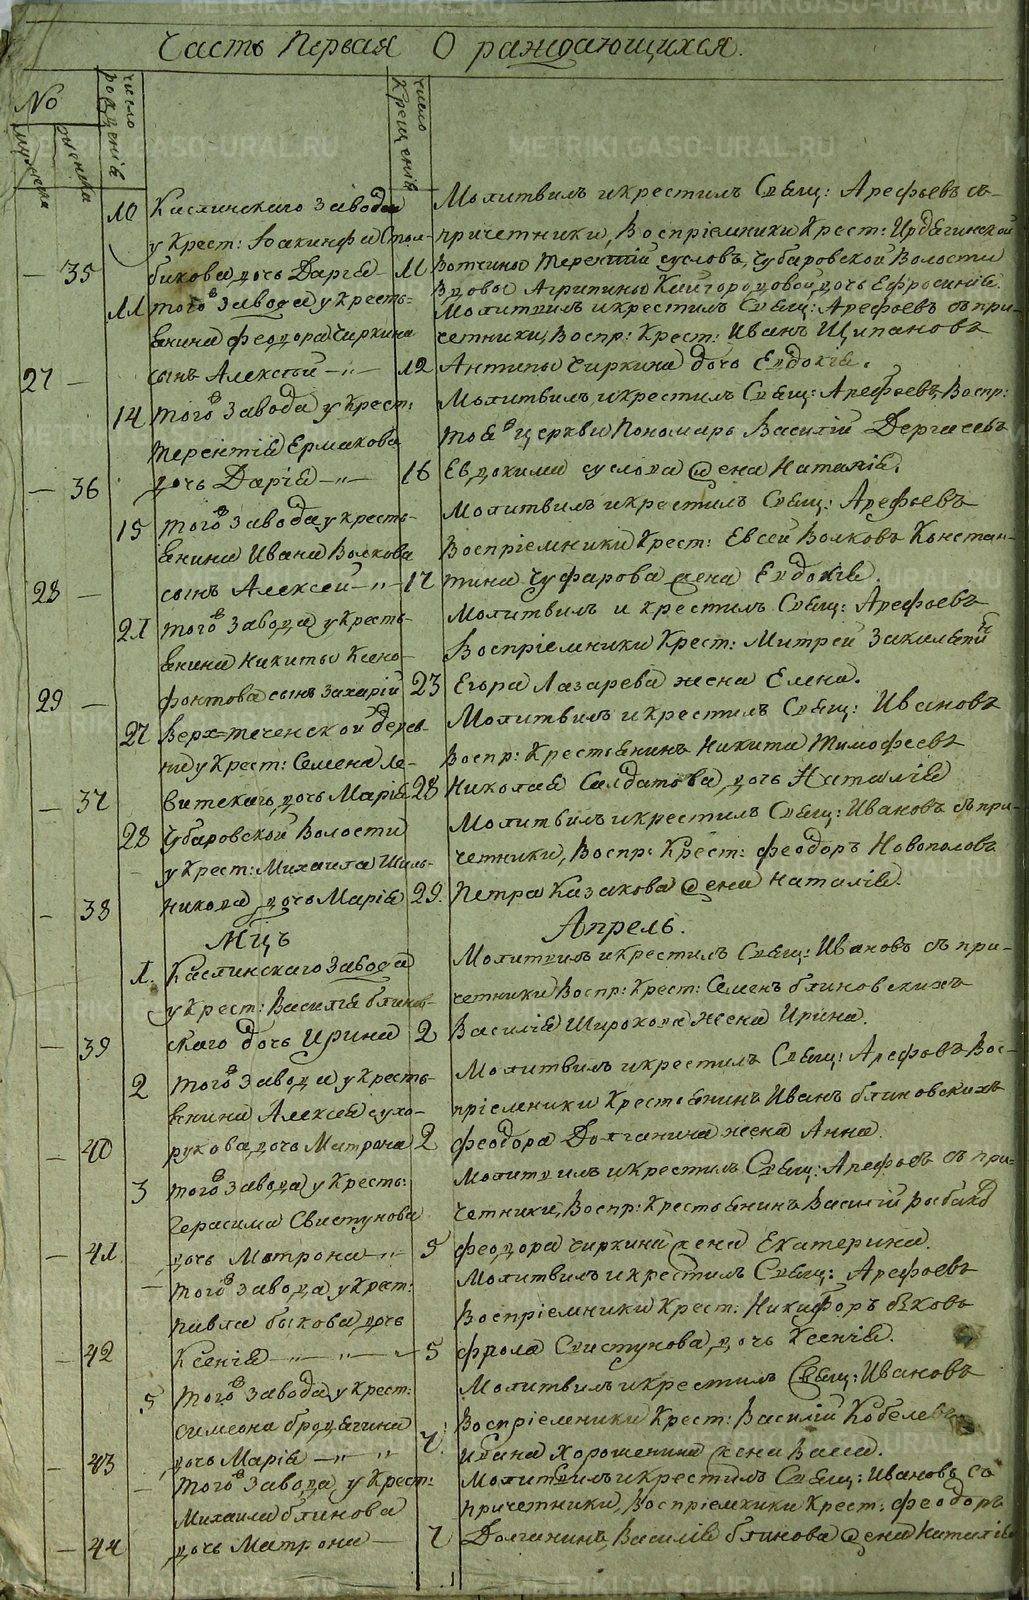 Часть Первая О раждающихся.
№
мужеска
женска
число рожденiѣ
число крещенiѣ
10 Каслинскаго завода
у Крест: Iоакинфа Стол-
— 35 бикова дочь Дарья 11
Молитвилъ и крестилъ Свѣщ: Арефьевъ съ
причетники, Воспрiемники Крест:
Вотчины Терентiй сусловъ, Чубаровской Волости
Вдовы Агрипины дочь Ефросинiѣ.
11 того завода у кресть-
янина феодора Чиркина
27 — сынъ Алексѣй —"— 12
Молитвилъ и крестилъ Свѣщ: Арефьевъ съ при-
четники, Воспр: Крест: Иванъ Щипановъ
Антипы Чиркина дочь Евдокiѣ.
14 того завода у Крест:
Терентiѣ Ермакова
— 36 дочь Дарiѣ —"— 16
Молитвилъ и крестилъ Свѣщ: Арефьевъ, Воспр:
тоя церкви Пономарь Василiй Дергачевъ
Евдокима суслова жена Наталiѣ.
15 того завода у кресть-
янина Ивана Волкова
28 — сынъ Алексей —"— 17
Молитвилъ и крестилъ Свѣщ: Арефьевъ
Воспрiемники Крест: Евсей Волковъ Констан-
тина Чуфарова жена Евдокiѣ.
21 того завода у кресть-
янина Никиты Ксено-
29 — фонтова сынъ Захарiй 23
Молитвилъ и крестилъ Свѣщ: Арефьевъ
Воспрiемники Крест: Митрей
Егора Лазарева жена Елена.
27 Верх=теченской дерев-
ни у Крест: Семена Ле-
— 37 витскаго, дочь Марiѣ 28
Молитвилъ и крестилъ Свѣщ: Ивановъ
Воспр: Крестьянинъ Никита Тимофеевъ
Николая Салдатова, дочь Наталiѣ
28 Чубаровской Волости
у Крест: Михаила Шиль-
— 38 никова дочь Марiѣ 29.
Молитвилъ и крестилъ Свѣщ: Ивановъ съ при-
четники, Воспр: Крест: феодоръ Новополовъ
Петра Казакова жена Наталiѣ.
Мцъ Апрель.
1. Каслинскаго завода
у Крест: Василiя блинов-
— 39 скаго дочь Ирина 2
Молитвилъ и крестилъ Свѣщ: Ивановъ съ при-
четники Воспр: Крест: Семенъ блиновскихъ
Василiя Широкова жена Ирина.
2 того завода у кресть-
янина Алексѣя сухо-
— 40 рукова, дочь Матрона 2
Молитвилъ и крестилъ Свѣщ: Арефьевъ Вос-
прiемники Крестьянинъ Иванъ блиновскихъ
феодора Долганина жена Анна.
3 того завода у Кресть:
Герасима Свистунова
— 41 дочь Матрона —"— 5
Молитвилъ и крестилъ Свѣщ: Арефьевъ съ при-
четники, Воспр: Крестьянинъ Василiй
феодора Чиркина жена Екатерина.
— того завода, у Крест:
Павла быкова, дочь
— 42 Ксенiѣ —"—"— 5
Молитвилъ и крестилъ Свѣщ: Арефьевъ
Воспрiемники Крест: Никифоръ
фрола Свистунова, дочь Ксенiѣ.
5 того завода, у Крест:
симеона бродягина
— 43 дочь Марiѣ —"—"— 7
Молитвилъ и крестилъ Свѣщ: Ивановъ
Воспрiемники Крест: Василiй Кобелевъ
Ивана Хорошенина жена Васса.
— того завода у Крест:
Михаила блинова
— 44 дочь Матрона — 7
Молитвилъ и крестилъ Свѣщ: Ивановъ съ
причетники, Воспрiемники Крест: феодоръ
Долганинъ, Василiя блинова жена Наталiѣ
METRIKI.GASO-URAL.RU